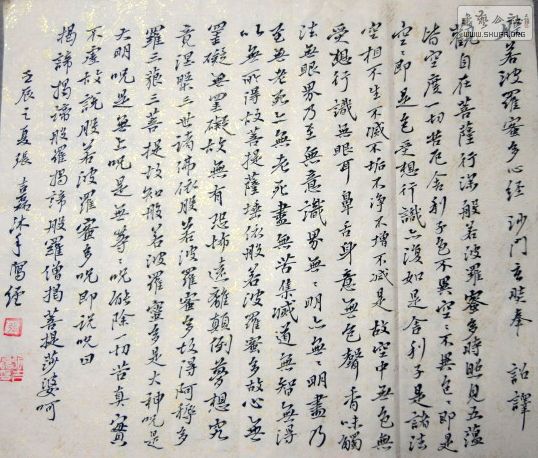 般若波羅蜜多心經 沙門玄奘奉 詔譯
觀自在菩薩行深般若波羅蜜多時照見五蘊
皆空度一切苦厄舍利子色不異空〻不異色〻即是
空〻即是色受想行識亦復如是舍利子是諸法
空相不生不滅不垢不淨不增不減是故空中無色無
受想行識無眼耳鼻舌身意無色聲香味觸
法無眼界乃至無意識界無〻明亦無〻明盡乃
至無老死亦無老死盡無苦集滅道無智無得
以無所得故菩提薩埵依般若波羅蜜多故心無
罣礙無罣礙故無有恐怖遠離顛倒夢想究
竟涅槃三世諸佛依般若波羅蜜多故得阿耨多
羅三藐三菩提故知般若波羅蜜多是大神咒是
大明咒是無上咒是無等〻咒能除一切苦真實
不虛故說般若波羅蜜多咒即說咒曰
揭諦揭諦般羅揭諦般羅僧揭諦菩提莎婆呵
壬辰之夏張吉磊沐手寫經
WWW.SHUFA.ORG